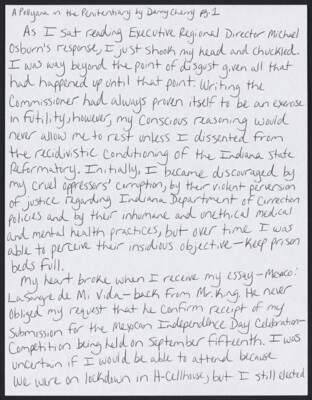 A Pollyana in the Penitentiary by Danny Cherry pg.1
As I sat reading Executive Regional Director Michael
Osburn's response, I just shook my head and chuckled.
I was way beyond the point of disgust given all that
had happened up until that point. Writing the
Commissioner had always proven itself to be an exercise
in futility; however, my Conscious reasoning would
never allow me to rest unless I dissented from
the recidivistic conditioning of the Indiana State
Reformatory. Initially, I became discouraged by
my cruel oppressors' corruption, by their violent perversion
of justice regarding Indiana Department of Correction
policies and by their inhumane and unethical medical
and mental health practices, but over time I was
able to perceive their insidious objective—Keep prison
beds full.
My heart broke when I receive my essay—Mexico:
La Sangre de Mi Vida—back from Mr. King. He never
obliged my request that he confirm receipt of my
submission for the Mexican Independence Day Celebration
Competition being held on September fifteenth. I was
uncertain if I would be able to attend because
we were on lockdown in H-Cellhouse, but I still elected